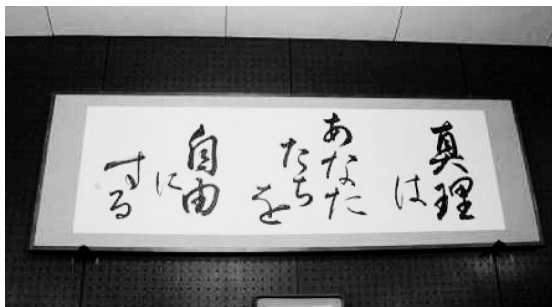 真理
は
あなた
たち
を
自由
に
する